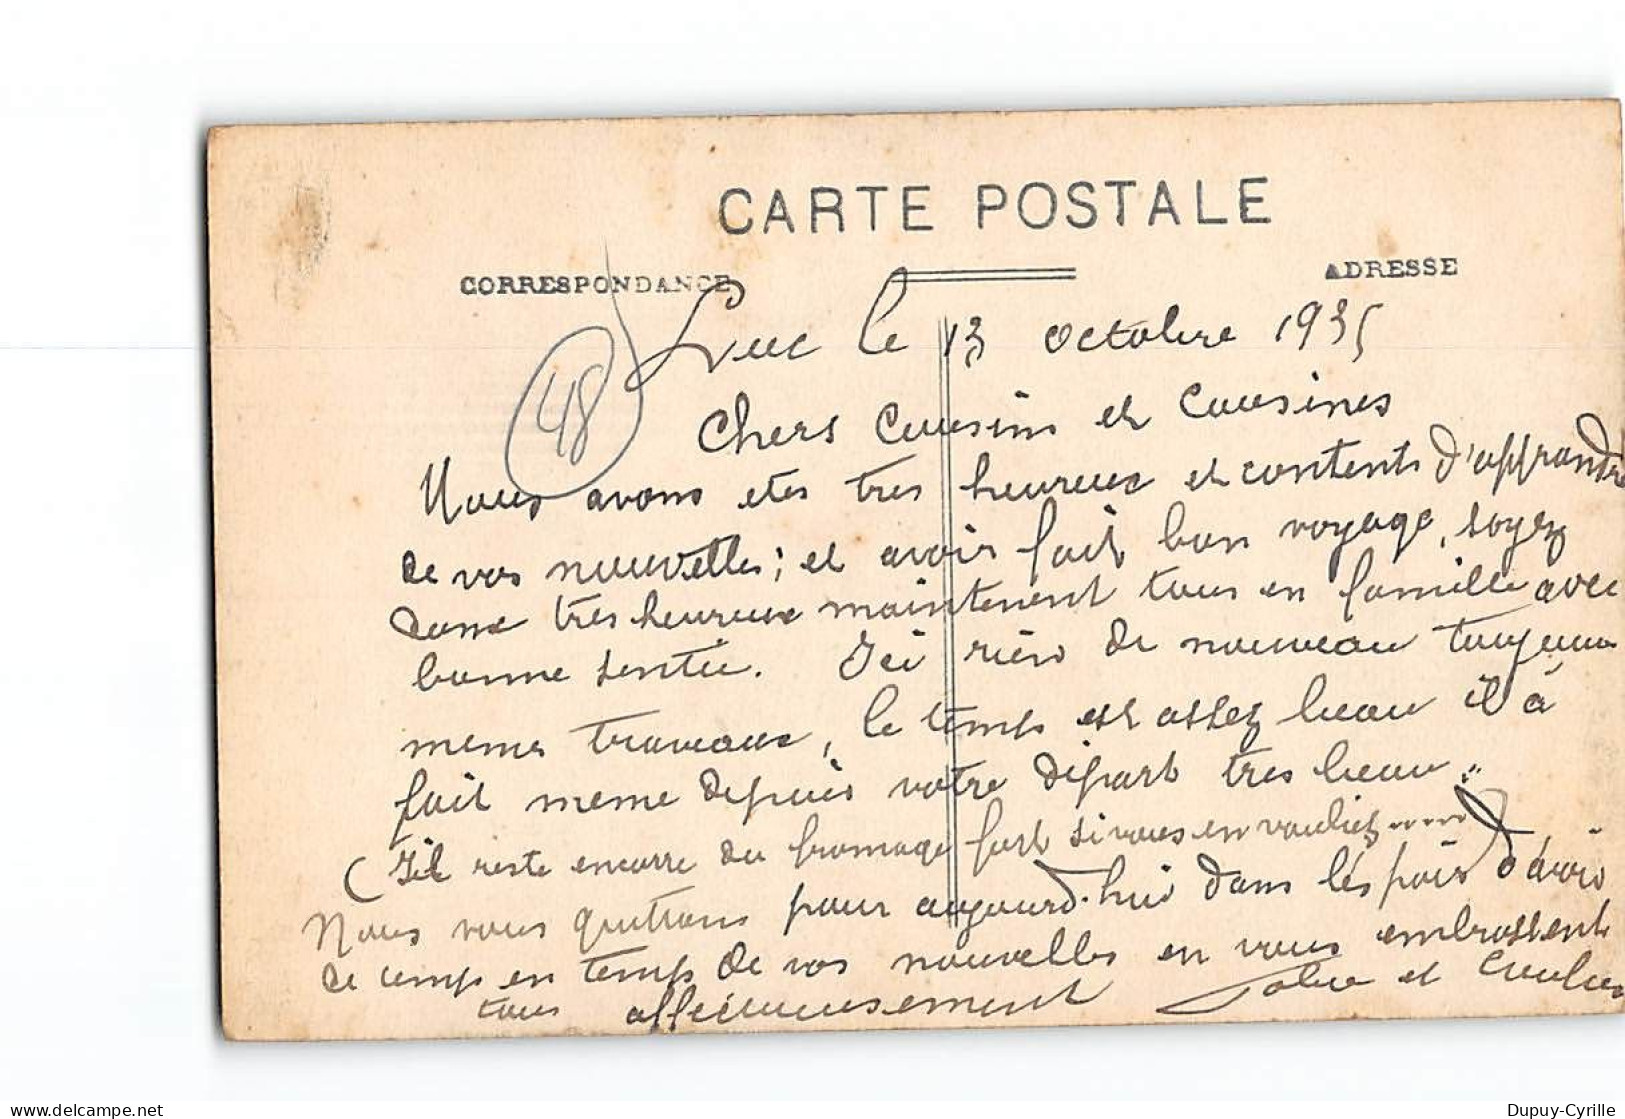 CARTE POSTALE
CORRESPONDANCE
ADRESSE
48
Luc le 13 octobre 1935
Chers Cousins et Cousines
Nous avons etes tres heureux et contents d'apprandre
de vos nouvelles; et avoir fait bon voyage, soyez
donc tres heureux maintenent tous en famille avec
bonne sentée. Ici rien de nouveau toujours
meme travaux, le temps est assez beau il à
fait meme depuis votre départ tres beau..
(Il reste encorre du fromage fort si vous en vouliez.....)
Nous vous quittons pour aujourd'hui dans l'éspoir d'avoir
de temps en temps de vos nouvelles en vous embrassent
tous affecueusement et
delcampe.net
Dupuy-Cyrille